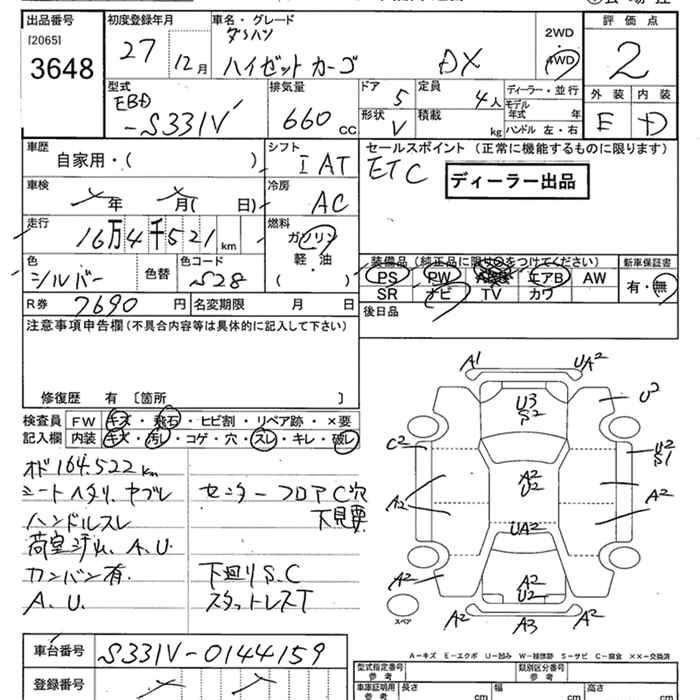 出品番号 初度登録年月 車名・グレード 評価点
[2065] 3648 27 12月 ダイハツ ハイゼットカーゴ DX 2WD 4WD 2
型式 EBD -S331V 排気量 660 CC ドア 5 定員 4人 ディーラー・並行 外装 内装
形状 V 積載 kg モデル年式 年 E D
ハンドル 左・右
車歴 自家用・( ) シフト IAT セールスポイント (正常に機能するものに限ります)
ETC ディーラー出品
車検 年 月( 日) 冷房 AC
走行 16万4千521km 燃料 ガソリン
軽・油
( )
色 シルバー 色替 色コード S28
装備品(純正品に限り○をつけてください) 新車保証書
PS PW ABS エアB AW 有・無
SR ナビ TV カワ
R券 7690 円 名変期限 月 日 後日品
注意事項申告欄(不具合内容等は具体的に記入して下さい)
修復歴 有 〔箇所 〕
検査員 FW キズ・飛石・ヒビ割・リペア跡・×要
記入欄 内装 キズ・汚レ・コゲ・穴・スレ・キレ・破レ
オド164.522km
シートヘタリ、ヤブレ センターフロアC穴
ハンドルスレ 下見要
荷室汚れ、A.U.
カンバン有. 下廻りS.C
A.U. スタットレスT
A1 UA2
U3 S2 U2
C2 U2 S1
A2 A2 U2 A2
UA2
A2 A2 U2 A2
A2 A3 A2
スペア
A-キズ E-エクボ U-凹み W-補修跡 S-サビ C-腐食 ××-交換済
車台番号 S331V-0144159
登録番号
型式指定番号 参考 類別区分番号 参考
車庫証明用 参考 長さ cm 幅 cm 高さ cm